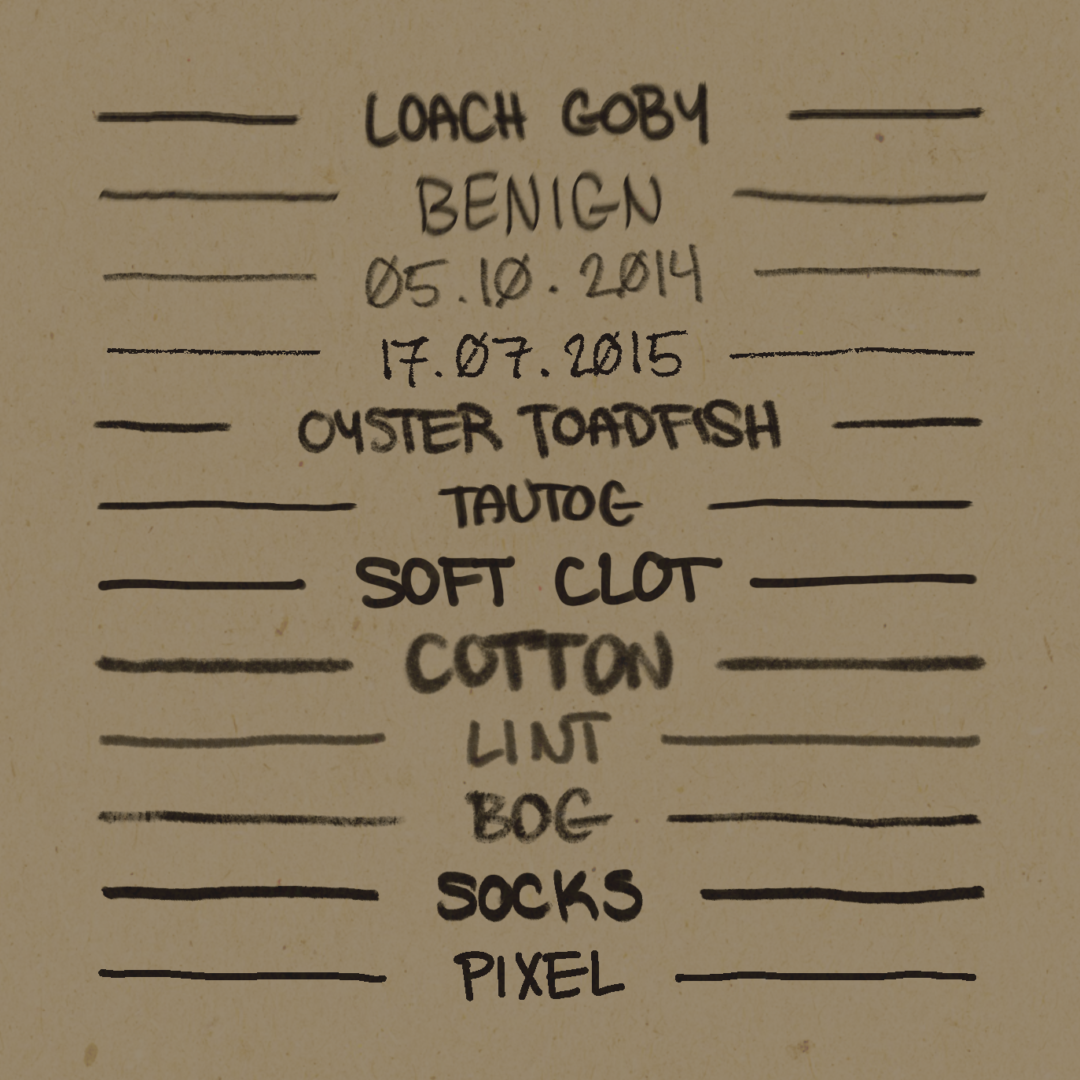 LOACH GOBY
BENIGN
05.10.2014
17.07.2015
OYSTER TOADFISH
TAUTOG
SOFT CLOT
COTTON
LINT
BOG
SOCKS
PIXEL